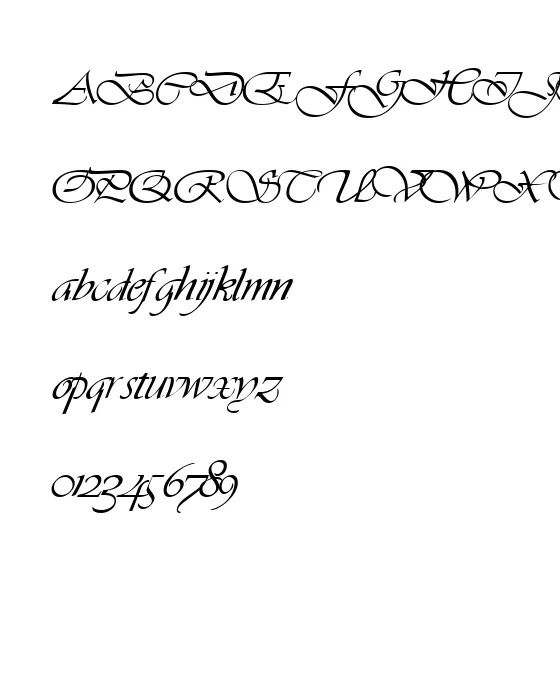 ABCDEFGHIJ
OPQRSTUVWX
abcdefghijklmn
opqrstuvwxyz
0123456789